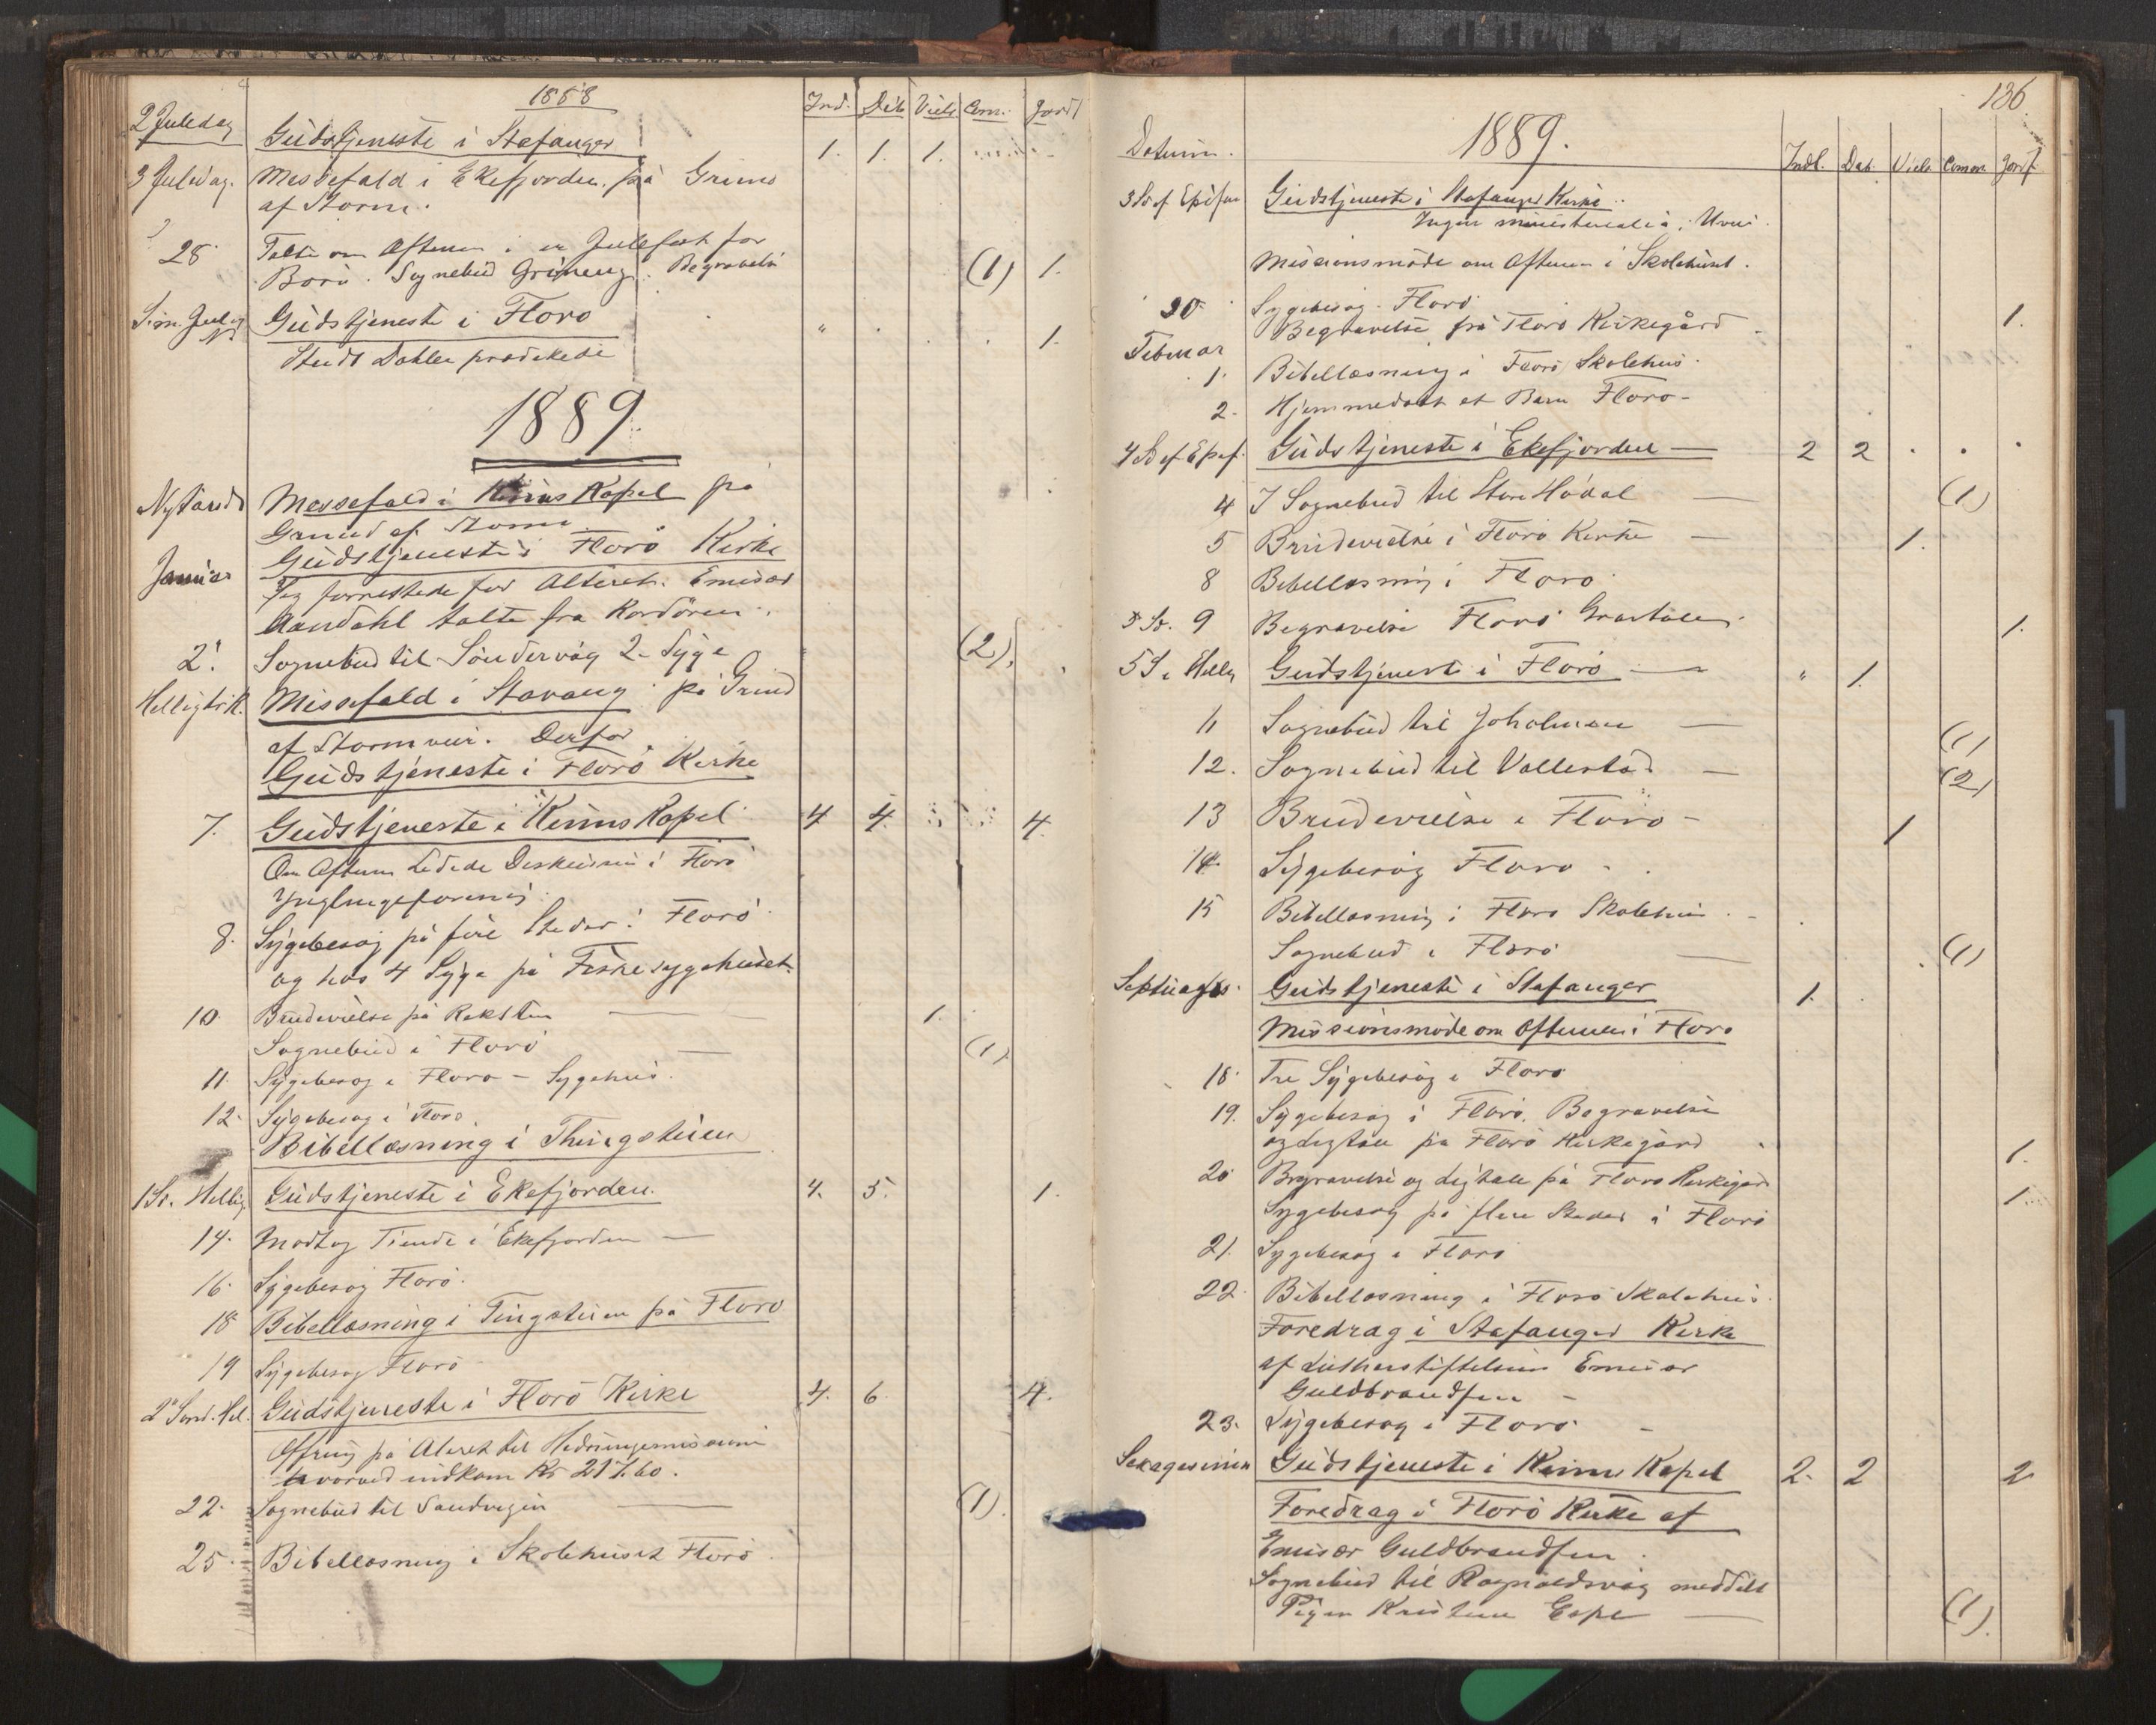 1888
Ind. Döb Viels Com. Jordf
2 Juledag Gudstjeneste i Stafanger 1. 1. 1.
3 Juledag. Messefald i Ekefjorden på Grund
af Storm.
28. Talte om Aftenen i en Julefest for
Börn. Sognebud Begravelse (1) 1.
S. m. Jul og Gudstjeneste i Florö 1.
Studt Dahler prædikede
1889
Nytårsd Messefald i Kinns Kapel på
Grund af Storm.
Gudstjeneste i Florö Kirke
Januar Jeg forrettede for Alteret. Emisær
Aandahl talte fra Kordören.
2. Sognebud til Söndervåg 2 Syge (2).
Helligtr.K. Messefald i Stavang på Grund
af Stormveir. Derfor
Gudstjeneste i Florö Kirke
7. Gudstjeneste i Kinns Kapel 4 4. 4.
Om Aftenen ledede Diskussion i Florö
Ynglingeforening.
8. Sygebesøg på fire Steder i Florö
og hos 4 Syge på Fiskesygehuset.
10. Brudevielse på Reksten — 1.
Sognebud i Florö — (1)
11. Sygebesøg i Florö - Sygehus.
12. Sygebesøg i Florö.
Bibellæsning i Thingstuen
1 Sö. Hellig Gudstjeneste i Ekefjorden. 4. 5. 1.
14. Modtog Tiende i Ekefjorden —
16. Sygebesøg Florö.
18 Bibellæsning i Tingstuen på Florö
19 Sygebesøg Florö
2 Sönd. Hel. Gudstjeneste i Florö Kirke 4. 6. 4.
Offring på Alteret til Hedningemissionen
hvorved indkom Kr 217.60.
22. Sognebud til Sandvigen — (1).
25. Bibellæsning i Skolehuset Florö
136
1889.
Datum. Indl. Döb. Viels Comm. Jordf
3 Sö ef Epifan Gudstjeneste i Stafanger Kirke.
Ingen ministerialia; Uveir.
Missionsmøde om Aftenen i Skolehuset.
30. Sygebesøg. Florö.
Begravelse på Florö Kirkegård 1.
Februar
1. Bibellæsning i Florö Skolehus.
2. Hjemmedöbt et Barn Florö -
4 Sö ef Epif. Gudstjeneste i Ekefjorden — 2 2
4 I Sognebud til Store Hödal — (1)
5 Brudevielse i Florö Kirke — 1.
8 Bibellæsning i Florö
9 Begravelse Florö Gravtale 1.
5 S. Hellg Gudstjeneste i Florö — " 1.
11 Sognebud til — (1)
12. Sognebud til Vallestad — (2)
13 Brudevielse i Florö - 1
14 Sygebesøg Florö -
15 Bibellæsning i Florö Skolehus. -
Sognebud i Florö — (1)
Septuages. Gudstjeneste i Stafanger 1.
Missionsmøde om Aftenen i Florö
18. Tre Sygebesøg i Florö
19. Sygebesøg i Florö. Begravelse
og Ligtale på Florö Kirkegård 1.
20 Begravelse og Ligtale på Florö Kirkegård 1
Sygebesøg på flere Steder i Florö
21. Sygebesøg i Florö
22. Bibellæsning i Florö Skolehus.
Foredrag i Stafanger Kirke
af Lutherstiftelsens Emisær
Guldbrandsen -
23. Sygebesøg i Florö. -
Sexagesimen Gudstjeneste i Kinns Kapel 2. 2 2
Foredrag i Florö Kirke af
Emisær Guldbrandsen.
Sognebud til Rognaldsvåg meddelt
Pigen Kristine Espe — (1).